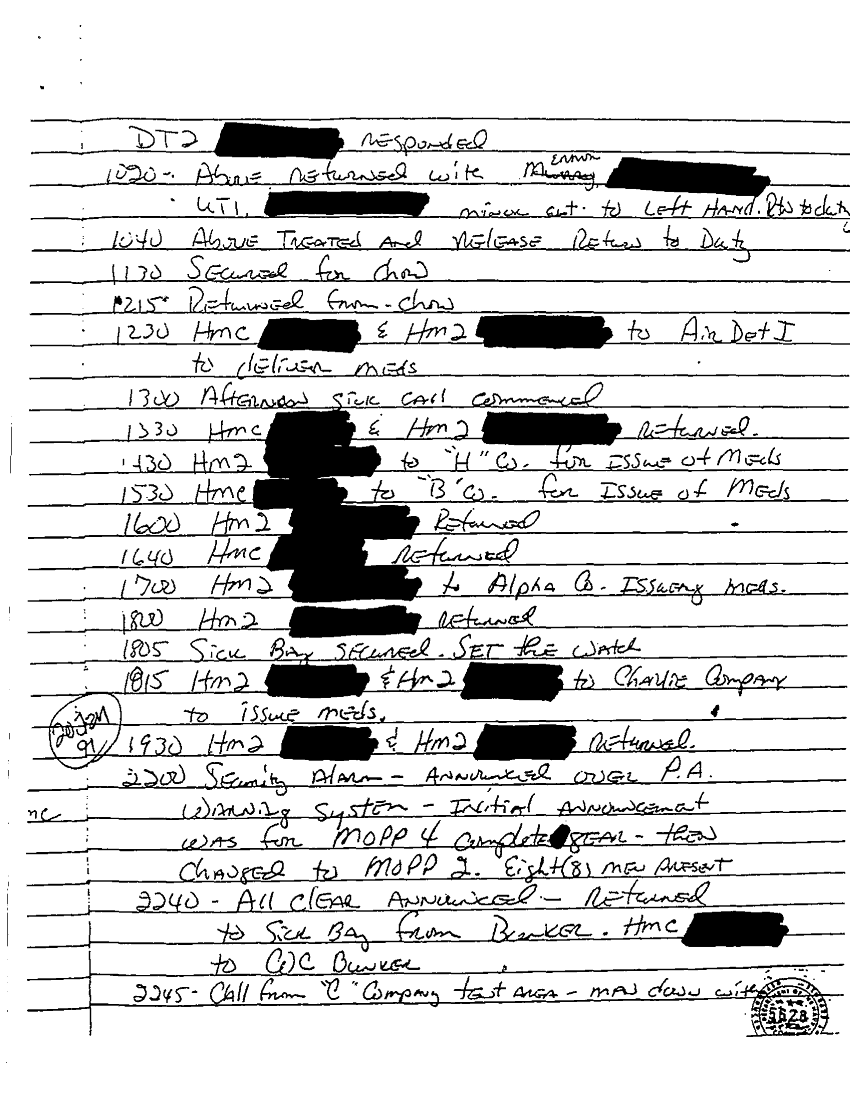 DT2 responded
1020-. Above returned with error
UT1, minor cut. to Left Hand. Rtn to duty
1040 Above Treated and release Return to Duty
1130 Secured for chow
1215 Returned from chow
1230 HMC & HM2 to Air Det I
to deliver meds
1300 Afternoon sick call commenced
1330 HMC & HM2 Returned.
1430 HM2 to "H" Co. for Issue of Meds
1530 HMC to "B" Co. for Issue of Meds
1600 HM2 Returned
1640 HMC Returned
1700 HM2 to Alpha Co. Issuing meds.
1800 HM2 Returned
1805 Sick Bay secured. Set the watch
1815 HM2 & HM2 to Charlie Company
to issue meds.
20 Jan 91
1930 HM2 & HM2 Returned.
2200 Security Alarm - Announced over P.A.
Warning System - Initial Announcement
was for MOPP 4 complete gear - then
changed to MOPP 2. Eight (8) men present
2240 - All clear Announced - Returned
to Sick Bay from Bunker. HMC
to Bunker
2245- Call from "C" Company tent area - man down with
5628